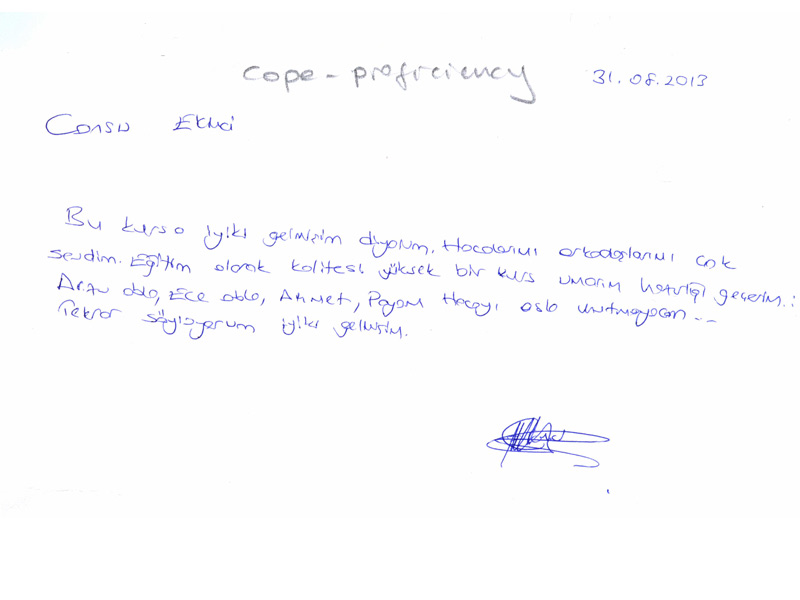 Cope - proficiency
31.08.2013
Cansu Ekici
Bu kursa iyiki gelmişim diyorum. Hocalarımı arkadaşlarımı çok
sevdim. Eğitim olarak kalitesi yüksek bir kurs umarım hazırlığı geçerim.:
Arzu abla, Ece abla, Ahmet, Payam Hocayı asla unutmayacam...
Tekrar söylüyorum iyiki gelmişim.